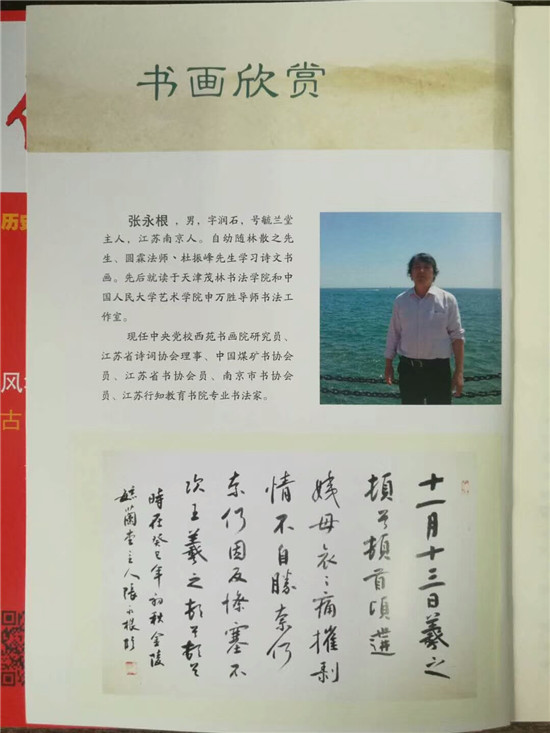 书画欣赏
张永根，男，字润石，号毓兰堂
主人，江苏南京人。自幼随林散之先
生、圆霖法师、杜振峰先生学习诗文书
画。先后就读于天津茂林书法学院和中
国人民大学艺术学院申万胜导师书法工
作室。
现任中央党校西苑书画院研究员、
江苏省诗词协会理事、中国煤矿书协会
员、江苏省书协会员、南京市书协会
员、江苏行知教育书院专业书法家。
十一月十三日羲之
頓首頓首頃遘
姨母哀〻痛摧剥
情不自勝奈何
奈何因反慘塞不
次王羲之頓首頓首
時在癸巳年初秋金陵
毓蘭堂主人張永根
历史
风
古